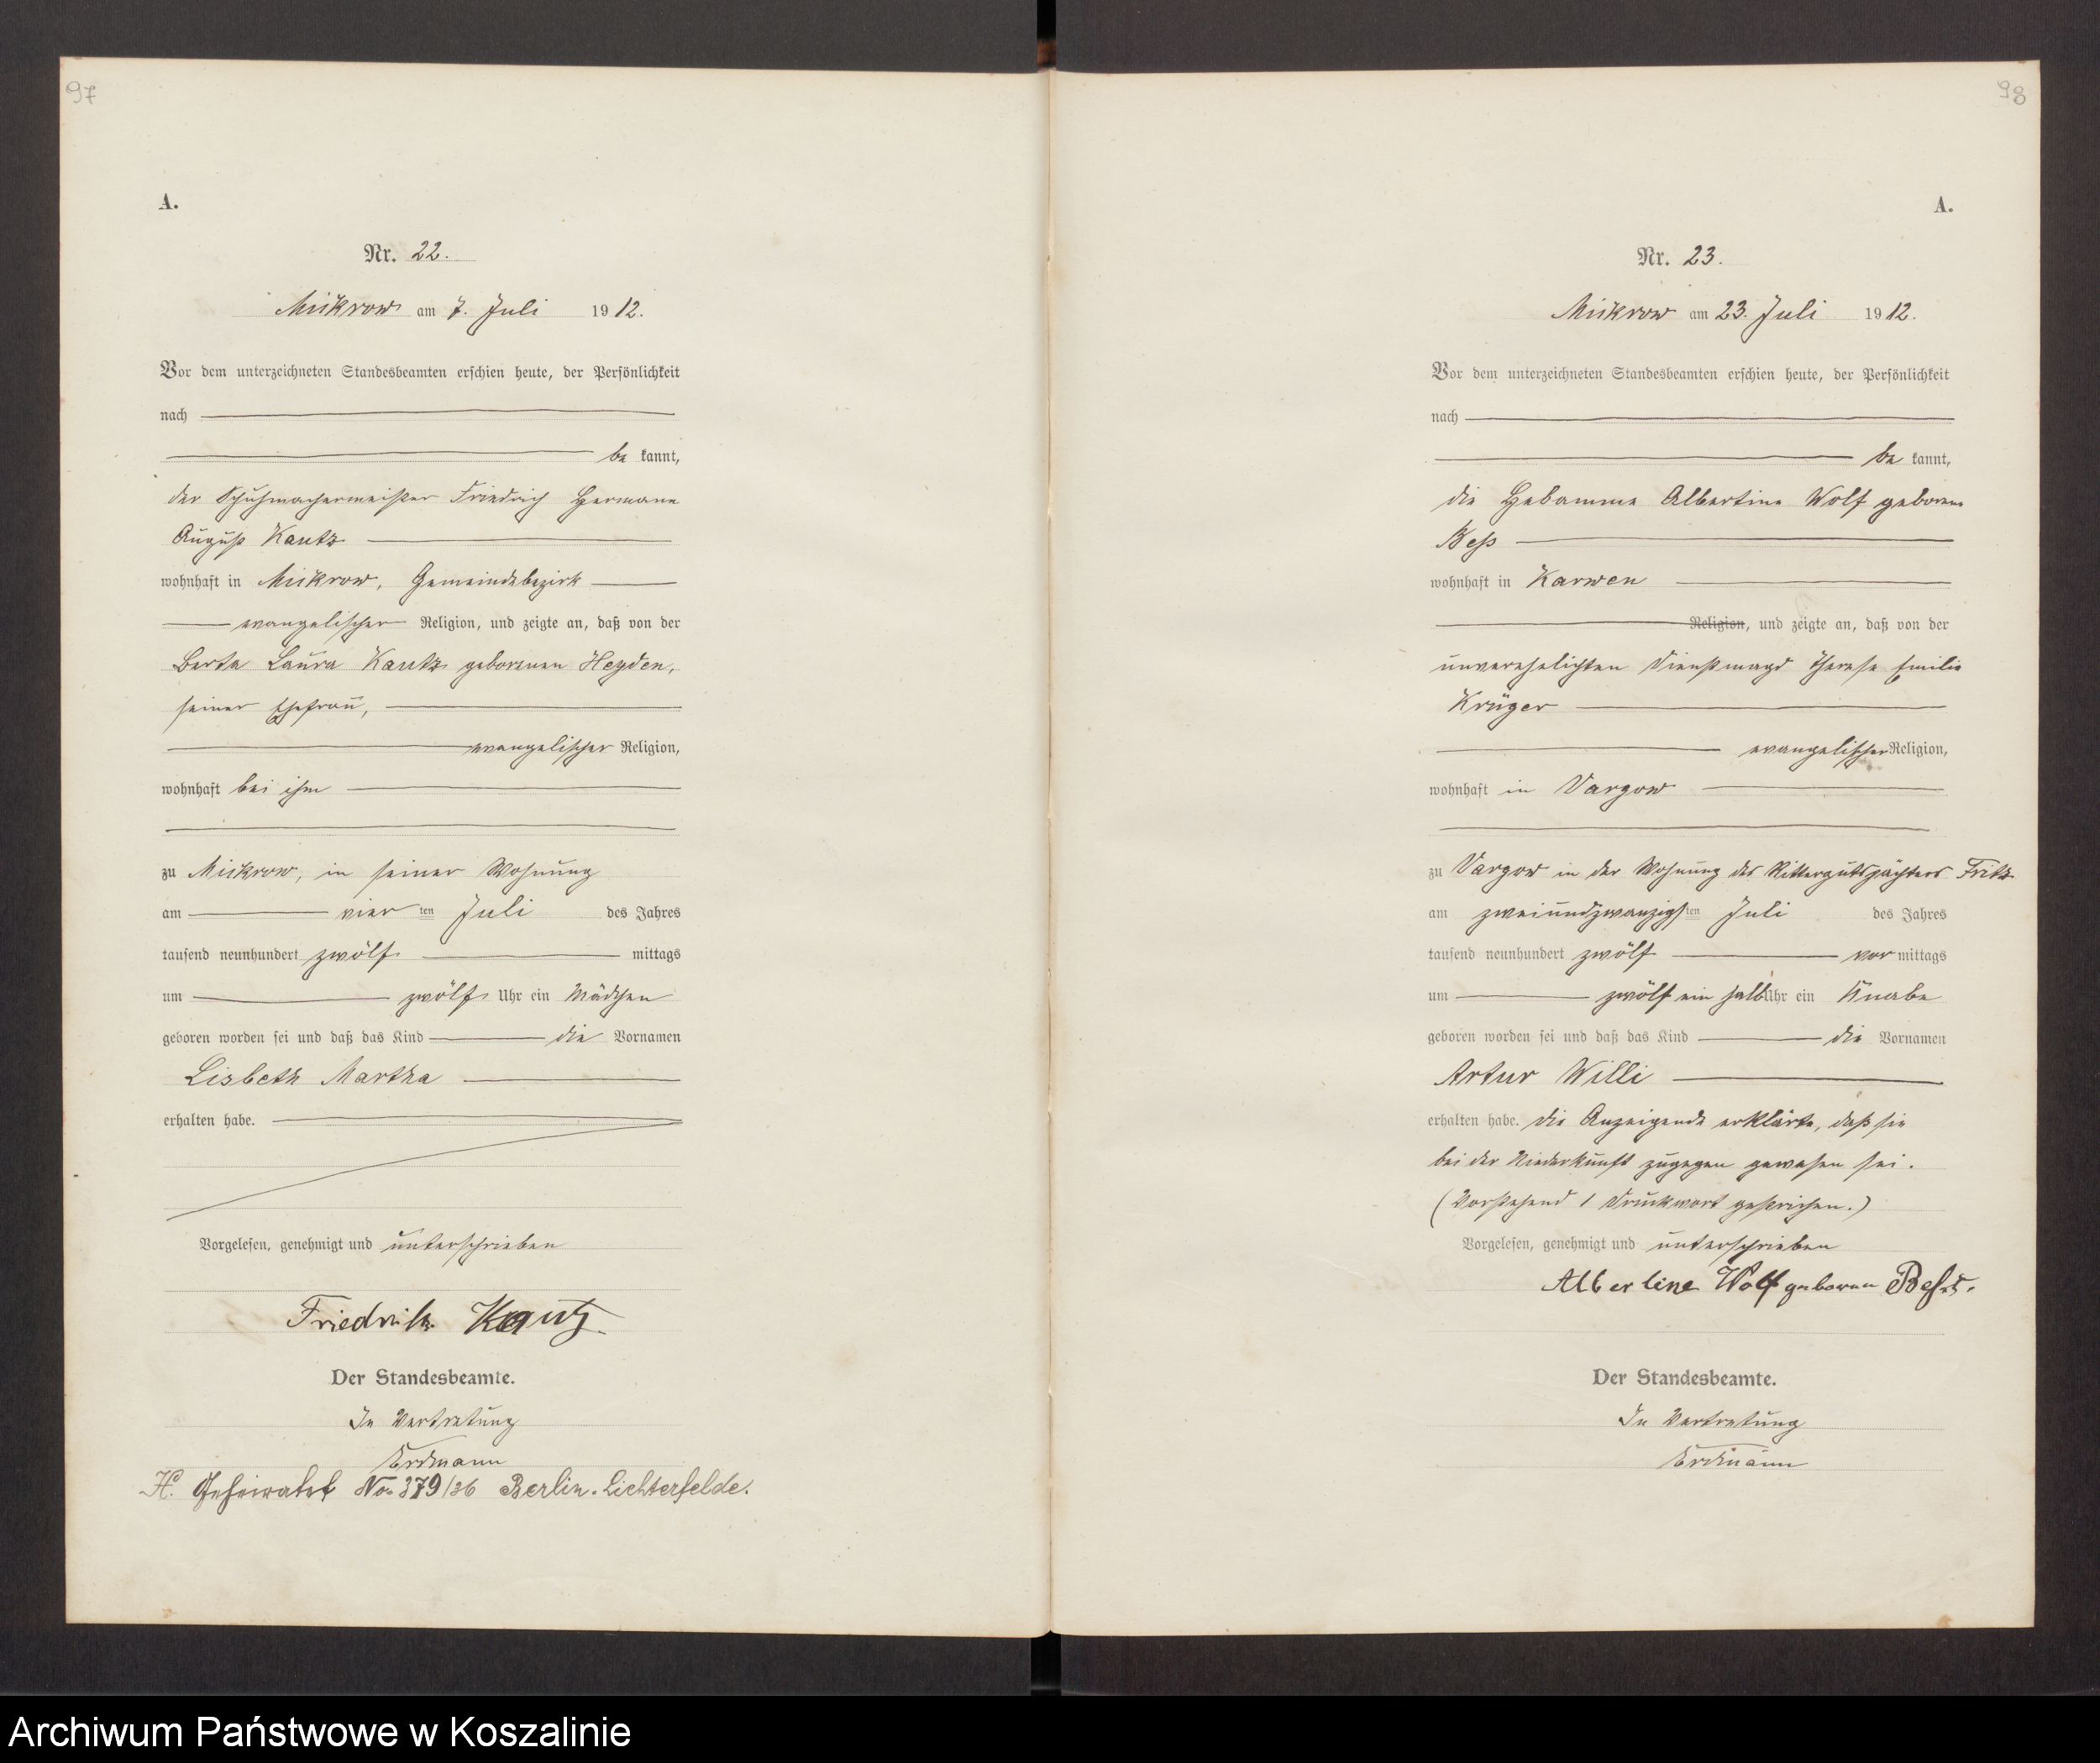 97
A.
Nr. 22.
Mikrow am 7. Juli 1912.
Vor dem unterzeichneten Standesbeamten erschien heute, der Persönlichkeit
nach
be kannt,
der Schuhmachermeister Friedrich Hermann
August Kautz
wohnhaft in Mikrow, Gemeindebezirk
evangelischer Religion, und zeigte an, daß von der
Berta Laura Kautz geborenen Heyden,
seiner Ehefrau,
evangelischer Religion,
wohnhaft bei ihm
zu Mikrow, in seiner Wohnung
am vier ten Juli des Jahres
tausend neunhundert zwölf mittags
um zwölf Uhr ein Mädchen
geboren worden sei und daß das Kind die Vornamen
Lisbeth Martha
erhalten habe.
Vorgelesen, genehmigt und unterschrieben
Friedrich Kautz
Der Standesbeamte.
In Vertretung
Erdmann
H. Geheiratet No. 379/36 Berlin-Lichterfelde.
98
A.
Nr. 23.
Mikrow am 23. Juli 1912.
Vor dem unterzeichneten Standesbeamten erschien heute, der Persönlichkeit
nach
be kannt,
die Hebamme Albertine Wolf geborene
wohnhaft in Karwen
Religion, und zeigte an, daß von der
unverehelichten Dienstmagd Therese Emilie
Krüger
evangelischer Religion,
wohnhaft in Vargow
zu Vargow in der Wohnung des Rittergutspächters Fritz
am zweiundzwanzigsten Juli des Jahres
tausend neunhundert zwölf vor mittags
um zwölf ein halb Uhr ein Knabe
geboren worden sei und daß das Kind die Vornamen
Artur Willi
erhalten habe. Die Anzeigende erklärte, daß sie
bei der Niederkunft zugegen gewesen sei.
(Vorstehend 1 Druckwort gestrichen.)
Vorgelesen, genehmigt und unterschrieben
Albertine Wolf geboren
Der Standesbeamte.
In Vertretung
Erdmann
Archiwum Państwowe w Koszalinie